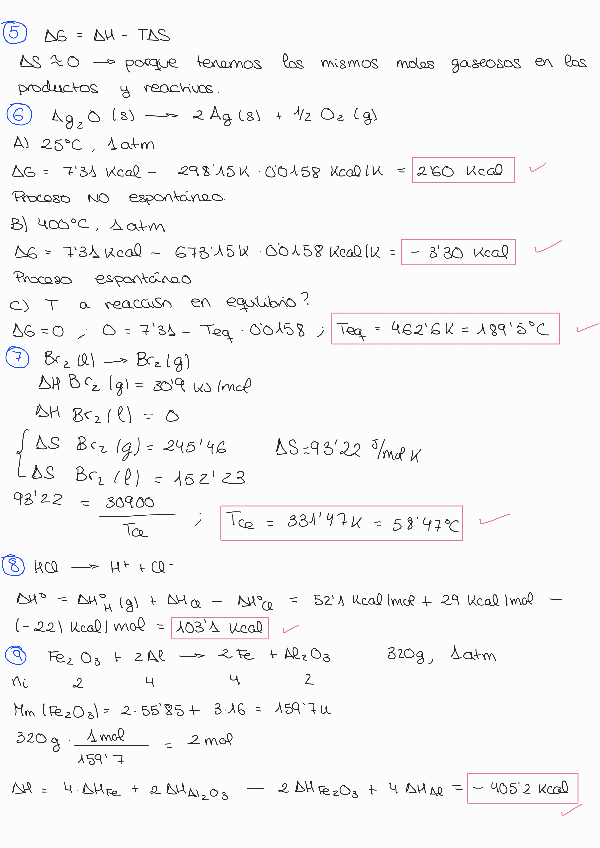 5 ΔG = ΔH - TΔS
ΔS ≈ 0 → porque tenemos los mismos moles gaseosos en los
productos y reactivos.
6 Ag2O (s) → 2 Ag (s) + 1/2 O2 (g)
A) 25°C, 1 atm
ΔG = 7'31 Kcal - 298'15K · 0'0158 Kcal/K = 2'60 Kcal ✓
Proceso NO espontáneo.
B) 400°C, 1 atm
ΔG = 7'31 Kcal - 673'15K · 0'0158 Kcal/K = - 3'30 Kcal ✓
Proceso espontáneo
C) T a reacción en equilibrio?
ΔG = 0 , 0 = 7'31 - Teq · 0'0158 ; Teq = 462'6K = 189'5°C ✓
7 Br2 (l) → Br2 (g)
ΔH Br2 (g) = 30'9 KJ/mol
ΔH Br2 (l) = 0
ΔS Br2 (g) = 245'46 ΔS = 93'22 J/mol K
ΔS Br2 (l) = 152'23
93'22 = 30900/Tce ; Tce = 331'47K = 58'47°C ✓
8 HCl → H+ + Cl-
ΔH° = ΔH°H (g) + ΔHCl - ΔH°Cl = 52'1 Kcal/mol + 29 Kcal/mol -
(-22) Kcal/mol = 103'1 Kcal ✓
9 Fe2O3 + 2Al → 2Fe + Al2O3 320g, 1 atm
ni 2 4 4 2
Mm (Fe2O3) = 2·55'85 + 3·16 = 159'7u
320g · 1mol/159'7 = 2 mol
ΔH = 4·ΔHFe + 2ΔHAl2O3 - 2ΔHFe2O3 + 4ΔHAl = - 405'2 Kcal ✓